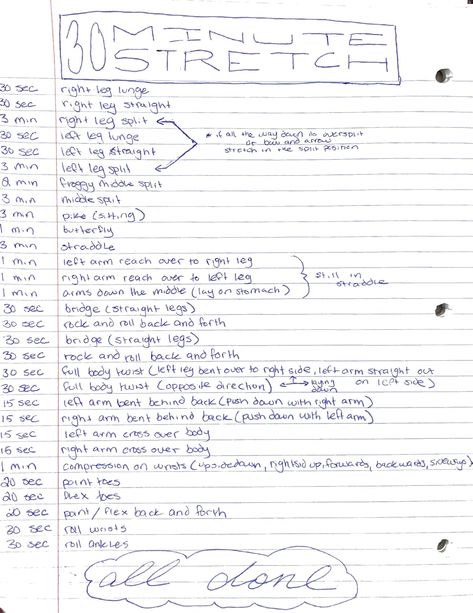 30 MINUTE
STRETCH
30 sec right leg lunge
30 sec right leg straight
3 min right leg split
30 sec left leg lunge
30 sec left leg straight
3 min left leg split
* if all the way down do oversplit
or bow and arrow
stretch in the split position
2 min froggy middle split
3 min middle split
3 min pike (sitting)
1 min butterfly
3 min straddle
1 min left arm reach over to right leg
1 min right arm reach over to left leg
1 min arms down the middle (lay on stomach)
still in
straddle
30 sec bridge (straight legs)
30 sec rock and roll back and forth
30 sec bridge (straight legs)
30 sec rock and roll back and forth
30 sec full body twist (left leg bent over to right side, left arm straight out
30 sec full body twist (opposite direction) laying down on left side)
15 sec left arm bent behind back (push down with right arm)
15 sec right arm bent behind back (push down with left arm)
15 sec left arm cross over body
15 sec right arm cross over body
1 min compression on wrists (upsidedown, rightsid up, forwards, backwards, sideways)
20 sec point toes
20 sec flex toes
20 sec point/flex back and forth
30 sec roll wrists
30 sec roll ankles
all done